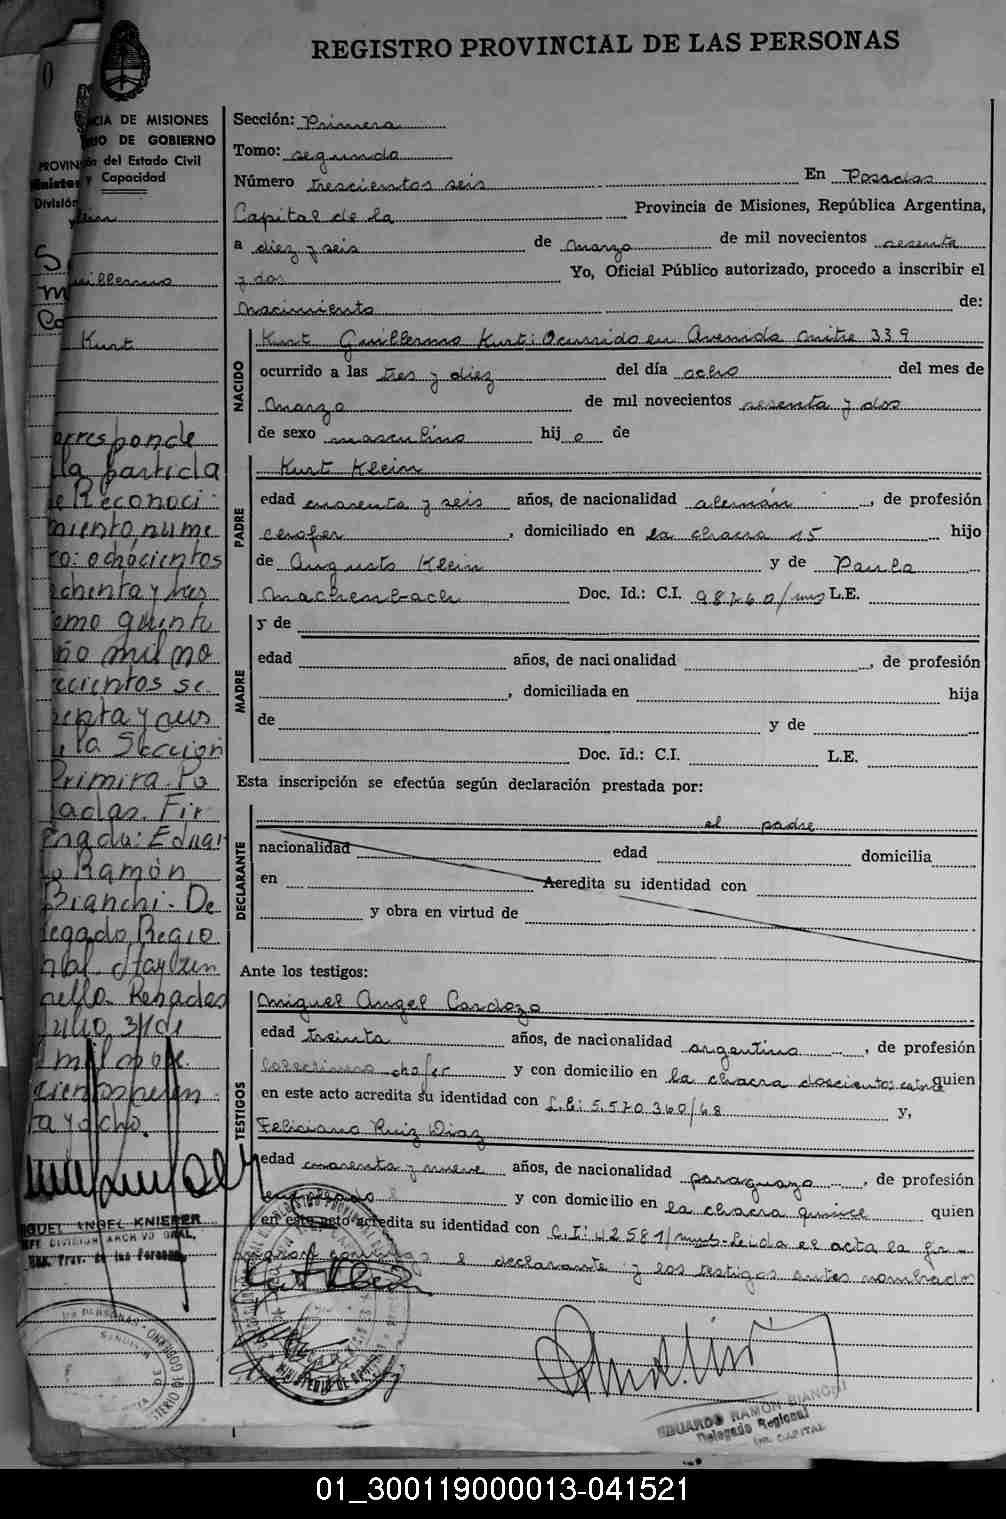 REGISTRO PROVINCIAL DE LAS PERSONAS
CIA DE MISIONES
DE GOBIERNO
PROVIN del Estado Civil
Minister y Capacidad
División
lein
uillermo
Kurt
orresponde
la partida
de Reconoci-
miento, nume
ro: ochocientos
ochenta y tres
omo quinto
ño mil no
ecientos se
senta y
la Sección
Primera Po
sadas. Fir
mada: Eduar
do Ramón
Bianchi - De
legado Regio
nal
Posadas
Julio 31 de
mil nove
cientos
ta y ocho.
MIGUEL ANGEL KNIERER
JEFE DIVISION ARCHIVO GRAL.
Prov. de las Personas
Sección: Primera
Tomo: segundo
Número trescientos seis En Posadas
Capital de la Provincia de Misiones, República Argentina,
a diez y seis de marzo de mil novecientos sesenta
y dos Yo, Oficial Público autorizado, procedo a inscribir el
nacimiento de:
NACIDO
Kurt Guillermo Kurt: Ocurrido en Avenida Mitre 339
ocurrido a las tres y diez del día ocho del mes de
marzo de mil novecientos sesenta y dos
de sexo masculino hij o de
PADRE
Kurt Klein
edad cuarenta y seis años, de nacionalidad alemán, de profesión
chofer, domiciliado en la chacra 15 hijo
de Augusto Klein y de Paula
Machenbach Doc. Id.: C.I. 98260/mns L.E.
MADRE
y de
edad años, de nacionalidad , de profesión
, domiciliada en hija
de y de
Doc. Id.: C.I. L.E.
Esta inscripción se efectúa según declaración prestada por:
DECLARANTE
el padre
nacionalidad edad domicilia
en Acredita su identidad con
y obra en virtud de
Ante los testigos:
TESTIGOS
Miguel Angel Cardozo
edad treinta años, de nacionalidad argentino, de profesión
chofer y con domicilio en la chacra doscientos quien
en este acto acredita su identidad con L.E: 5.570.360/48 y,
Feliciano Ruiz Diaz
edad cuarenta y nueve años, de nacionalidad paraguayo, de profesión
empleado y con domicilio en la chacra quince quien
en este acto acredita su identidad con C.I: 42581/mns - Leida el acta la fir-
maron conmigo el declarante y los testigos antes nombrados
Kurt Klein
EDUARDO RAMON BIANCHI
Delegado Regional
CAPITAL
01_300119000013-041521